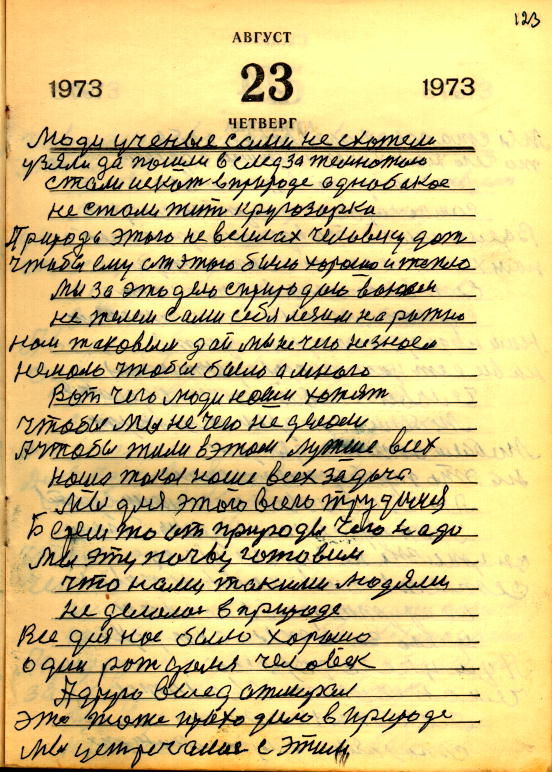 123
АВГУСТ
1973 23 1973
ЧЕТВЕРГ
Люди ученые сами не схотели
узяли да пошли вслед за темнотою
стали искат в природе однобокое
не стали жит кругозорка
Природа этого не всилах человеку дат
Чтобы ему от этого было хорошо и тепло
Мы за это дело с природою воюем
не жилем сами себя лезим на рожно
нам таковым дай мы не чего не знаем
не мало чтобы было а много
Вот чего люди наши хотят
Чтобы мы не чего не делали
А чтобы жили в этом лутше всех
наша така наше всех задача
Мы для этого всего трудимся
Берем то от природы чего надо
Мы эту почву готовим
что нами такими людями
не делолос в природе
Все для нас было хорошо
один рождался человек
А други вслед отмирал
это тоже приходило в природе
Мы устречалис с этим